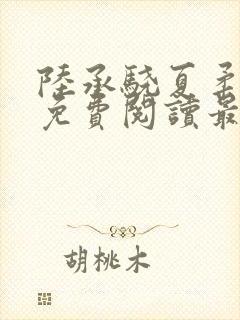 陸承驍夏柔
免費閱讀最
胡桃木